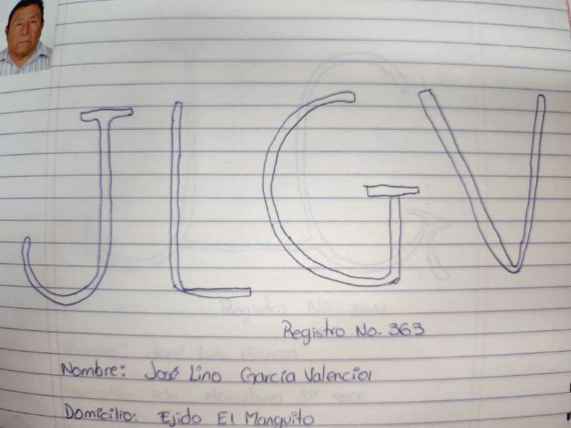 JLGV
Registro No. 363
Nombre: José Lino García Valencia
Domicilio: Ejido El Manguito